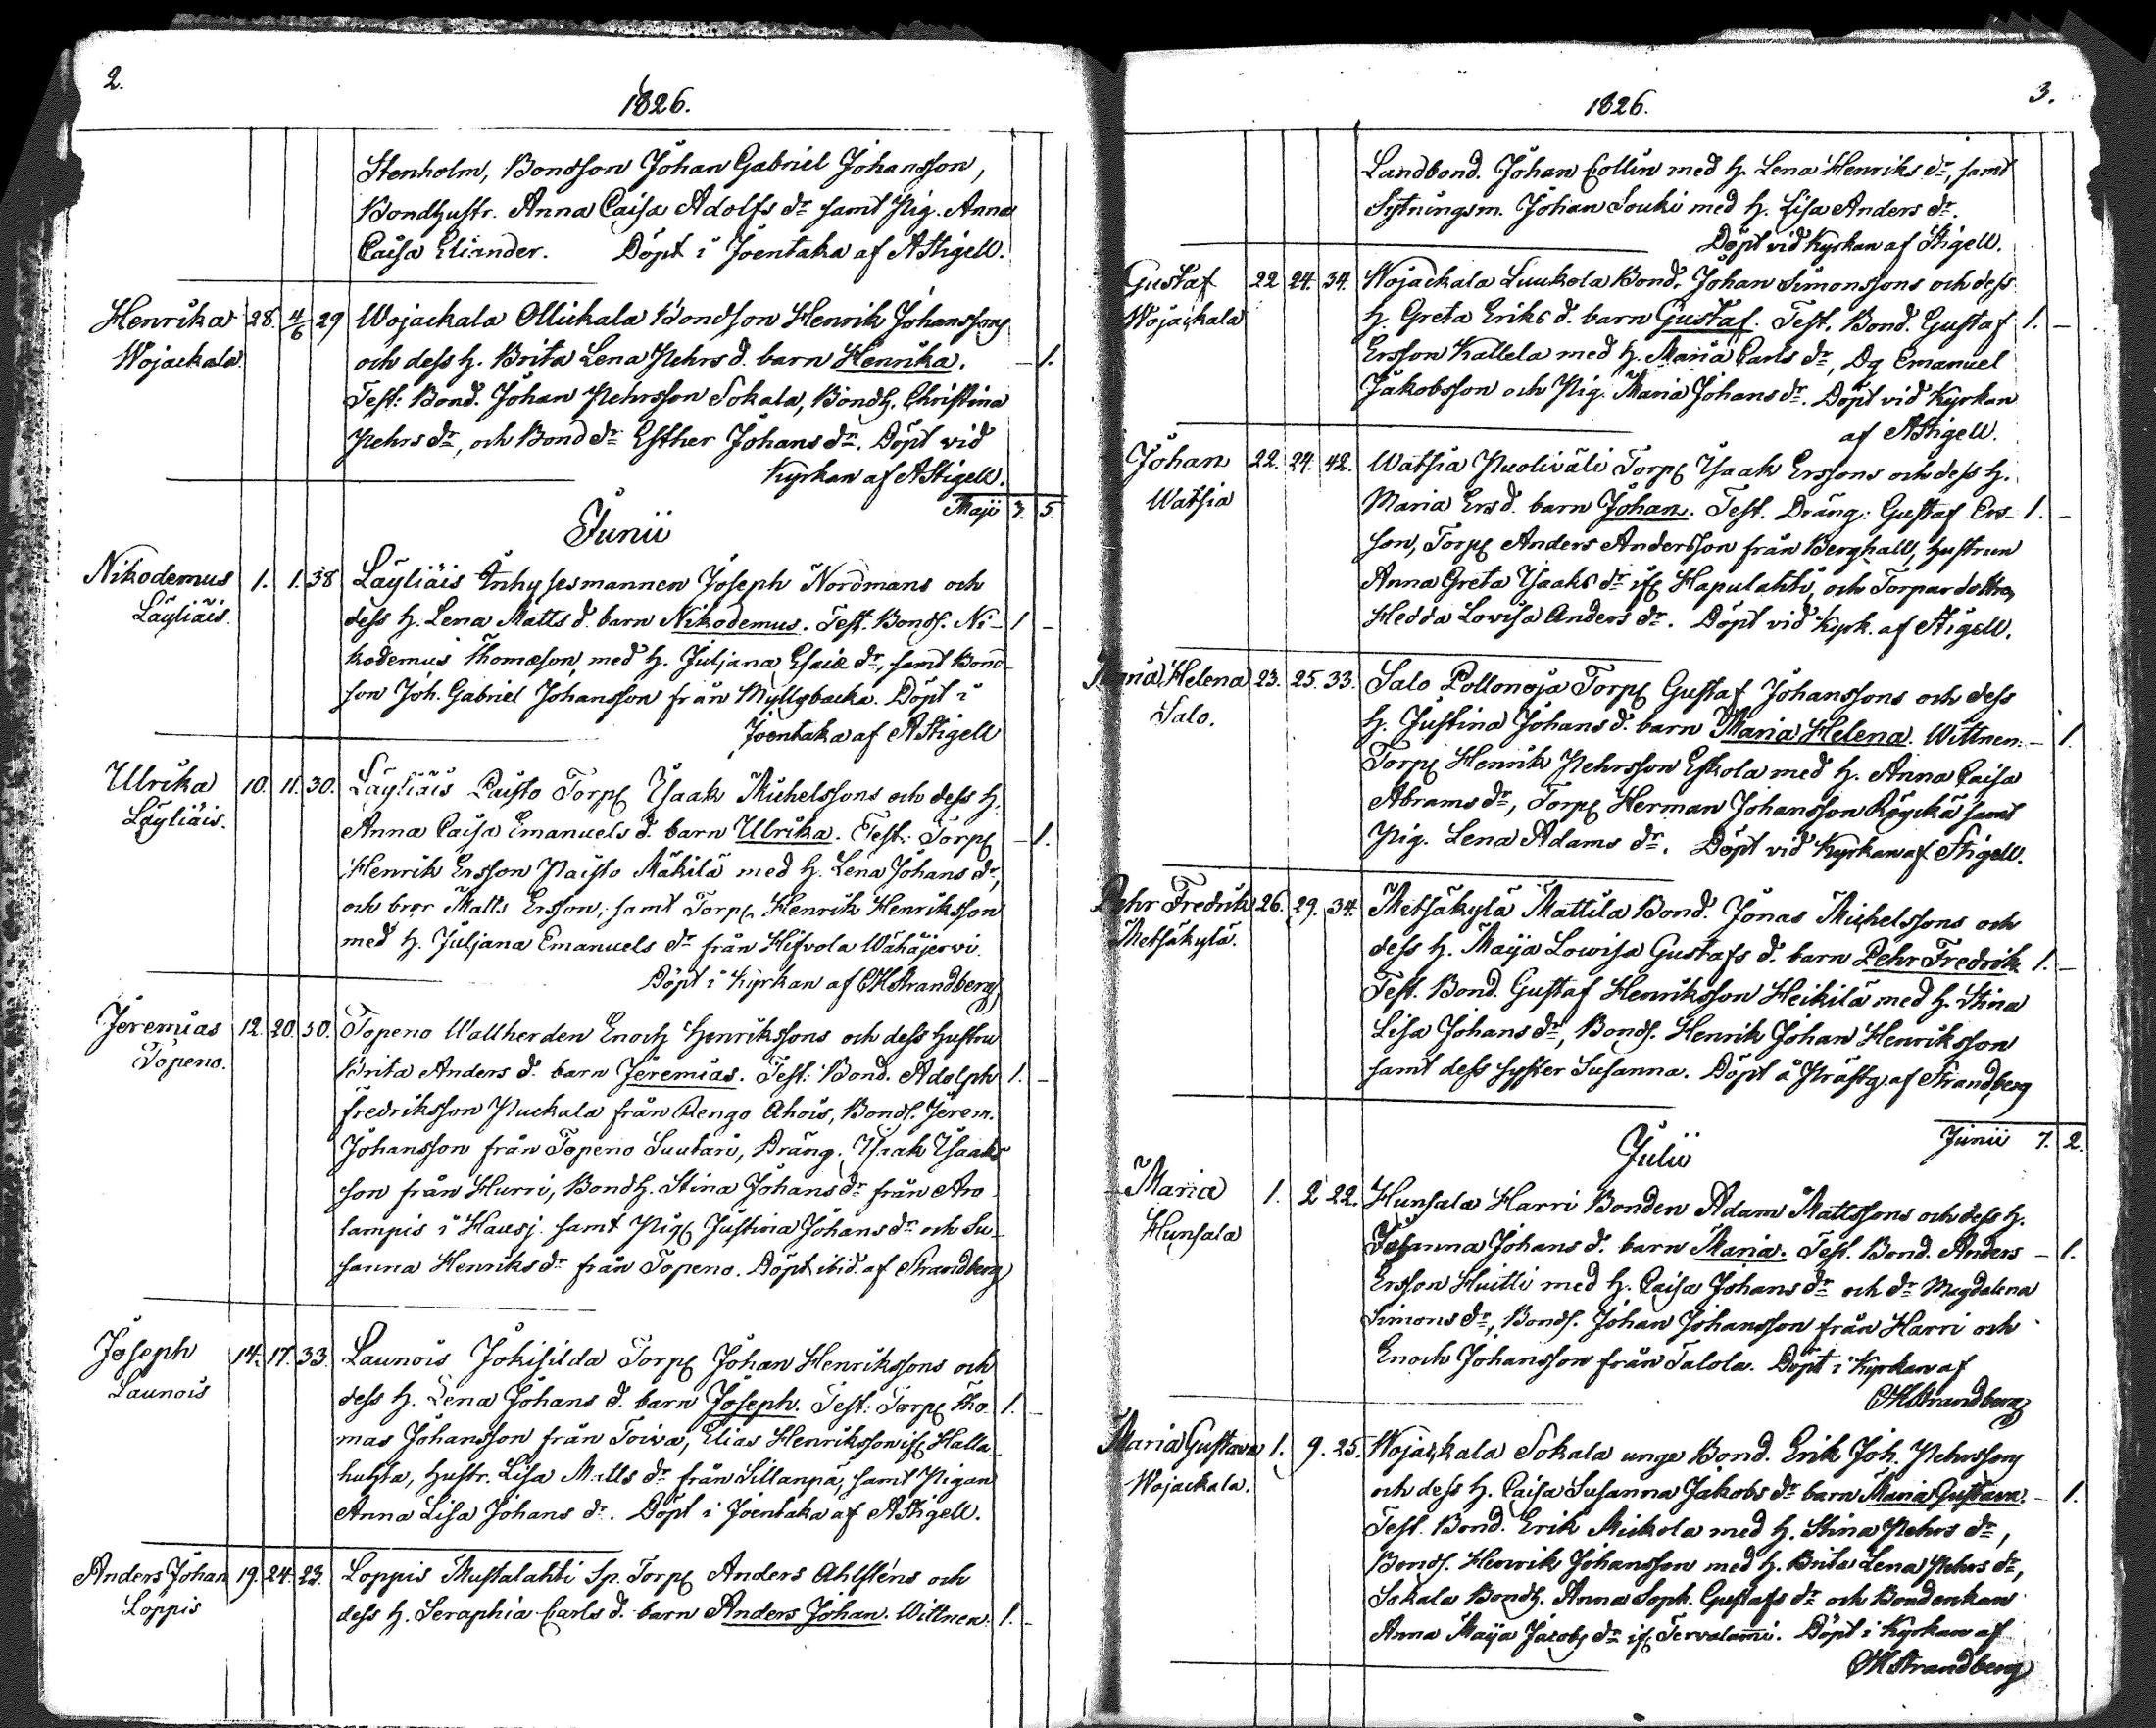 2.
1826.
Stenholm, Bondsson Johan Gabriel Johansson,
Bondhustr. Anna Caisa Adolfs dr samt Pig. Anna
Caisa Eliander. Döpt i Joentaka af AStigell.
Henrika 28. 4/6 29 Wojackala Ollickala Bondson Henrik Johanssons
Wojackala. och dess h. Brita Lena Pehrs d. barn Henrika. – 1.
Test: Bond. Johan Pehrsson Sokala, Bondh. Christina
Pehrs dr, och Bond dr Esther Johans dr. Döpt vid
Kyrkan af AStigell.
Maji 7. 5.
Junii
Nikodemus 1. 1. 38 Läyliäis Inhysesmannen Joseph Nordmans och
Läyliäis. dess h. Lena Matts d. barn Nikodemus. Test. Bonds. Ni- 1 –
kodemus Thomæson, med h. Juljana Esaiæ dr, samt Bond-
son Joh. Gabriel Johansson från Myllybacka. Döpt i
Joentaka af AStigell
Ulrika 10. 11. 30. Läyliäis Paisto Torp Isaak Michelssons och dess h.
Läyliäis. Anna Caisa Emanuels d. barn Ulrika. Test: Torp – 1.
Henrik Ersson Paisto Mäkilä med h. Lena Johans dr,
och bror Matts Ersson, samt Torp Henrik Henriksson
med h. Juljana Emanuels dr från Hifvola Wähäjerwi.
Döpt i Kyrkan af CHStrandberg
Jeremias 12. 20. 30. Topeno Wallherden Enoch Henrikssons och dess hustru
Topeno. Brita Anders d. barn Jeremias. Test: Bond. Adolph 1. –
Fredriksson Puckala från Rengo Ahois, Bonds. Jerem.
Johansson från Topeno Suutari, Dräng. Isaak Isaaks
son från Hurri, Bondh. Stina Johans dr från Aro-
lampis i Hausj. samt Pig Justina Johans dr och Su-
sanna Henriks dr från Topeno. Döpt ibid. af Strandberg
Joseph 14. 17. 33. Launois Jokisilda Torp Johan Henrikssons och
Launois dess h. Lena Johans d. barn Joseph. Test: Torp Tho- 1. –
mas Johansson från Toiwa, Elias Henriksson if Halla-
huhta, hustr. Lisa Matts dr från Sillanpä, samt Pigan
Anna Lisa Johans dr. Döpt i Joentaka af AStigell.
Anders Johan 19. 24. 23. Loppis Mustalahti Sp. Torp Anders Ahlsténs och
Loppis dess h. Seraphia Carls d. barn Anders Johan. Wittnen. 1. –
3.
1826.
Landbond. Johan Collin med h. Lena Henriks dr, samt
Sytningsm. Johan Souki med h. Lisa Anders dr.
Döpt vid Kyrkan af Stigell.
Gustaf 22 24. 34. Wojackala Luukola Bond. Johan Simonssons och dess
Wojackala h. Greta Eriks d. barn Gustaf. Test. Bond. Gustaf 1. –
Ersson Kallela med h. Maria Carls dr, Dg Emanuel
Jakobsson och Pig. Maria Johans dr. Döpt vid Kyrkan
af AStigell.
Johan 22. 24. 42. Watsia Puoliväli Torp Isaak Erssons och dess h.
Watsia Maria Ers d. barn Johan. Test. Dräng: Gustaf Ers- 1. –
son, Torp Anders Andersson från Berghall, hustrun
Anna Greta Isaaks dr if Hapulahti, och Torpardottren
Hedda Lowisa Anders dr. Döpt vid Kyrk. af Stigell.
Maria Helena 23. 25. 33. Salo Pollonoja Torp Gustaf Johanssons och dess
Salo. h. Justina Johans d. barn Maria Helena. Wittnen. – 1.
Torp Henrik Pehrsson Eskola med h. Anna Caisa
Abrams dr, Torp Herman Johansson Röyckä samt
Pig. Lena Adams dr. Döpt vid Kyrkan af Stigell.
Pehr Fredrik 26. 29. 34. Metsäkylä Mattila Bond. Jonas Michelssons och
Metsäkylä. dess h. Maija Lowisa Gustafs d. barn Pehr Fredrik 1. –
Test. Bond. Gustaf Henriksson Heikilä med h. Stina
Lisa Johans dr, Bonds. Henrik Johan Henriksson
samt dess syster Susanna. Döpt å Prästg. af Strandberg
Junii 7. 2.
Julii
Maria 1. 2 22. Hunsala Harri Bonden Adam Mattssons och dess h.
Hunsala Johans d. barn Maria. Test. Bond. Anders – 1.
Ersson Huitti med h. Caisa Johans dr och dr Magdalena
Simons dr, Bonds. Johan Johansson från Harri och
Enoch Johansson från Talola. Döpt i Kyrkan af
CHStrandberg
Maria Gustava 1. 9. 25. Wojackala Sokala unge Bond. Erik Joh. Pehrssons
Wojackala. och dess h. Caisa Susanna Jakobs dr barn Maria Gustava. – 1.
Test. Bond. Erik Mickola med h. Stina Pehrs dr,
Bonds. Henrik Johansson med h. Brita Lena Pehrs dr,
Sokala Bondh. Anna Soph. Gustafs dr och Bondenkan
Anna Maija Jacobs dr if Tervalammi. Döpt i Kyrkan af
CHStrandberg